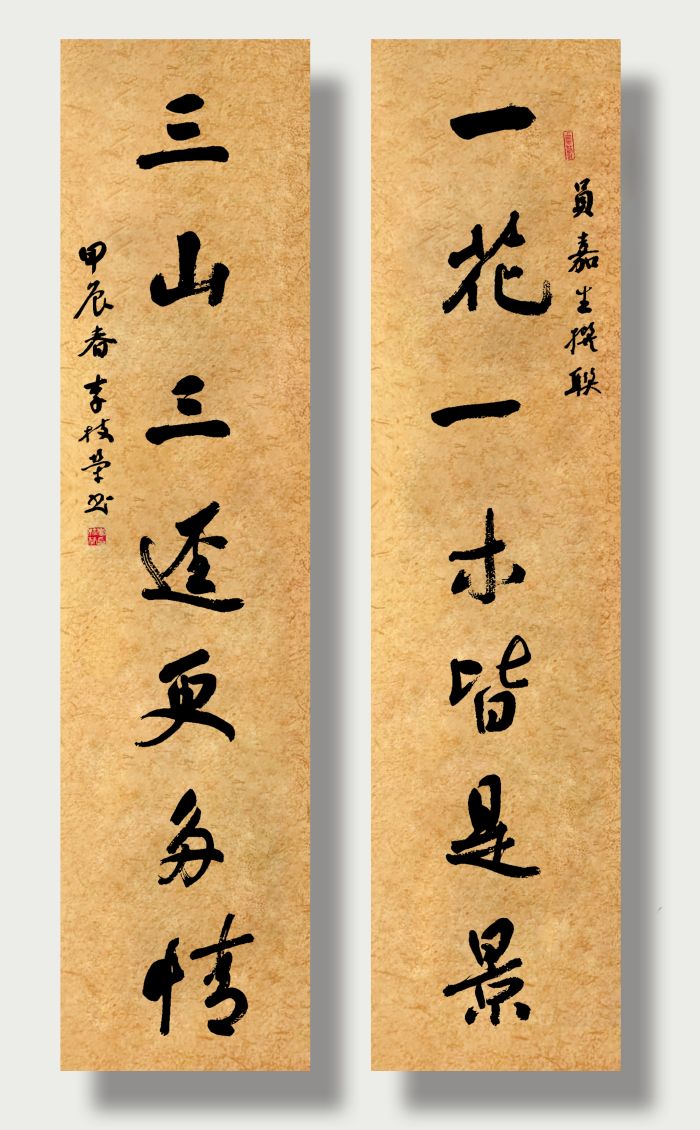 員嘉生撰聯
一花一木皆是景
三山三迳更多情
甲辰春李枝荣书